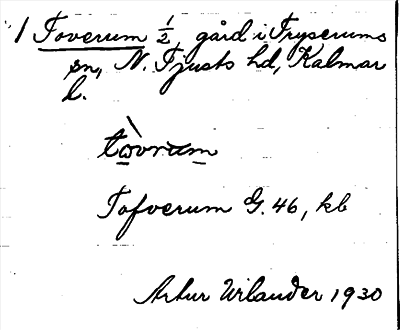 1 Toverum ½, gård i Tryserums
sn, N. Tjusts hd, Kalmar
l.
tωvrum
Tofverum G. 46, kb
Artur Wilander 1930